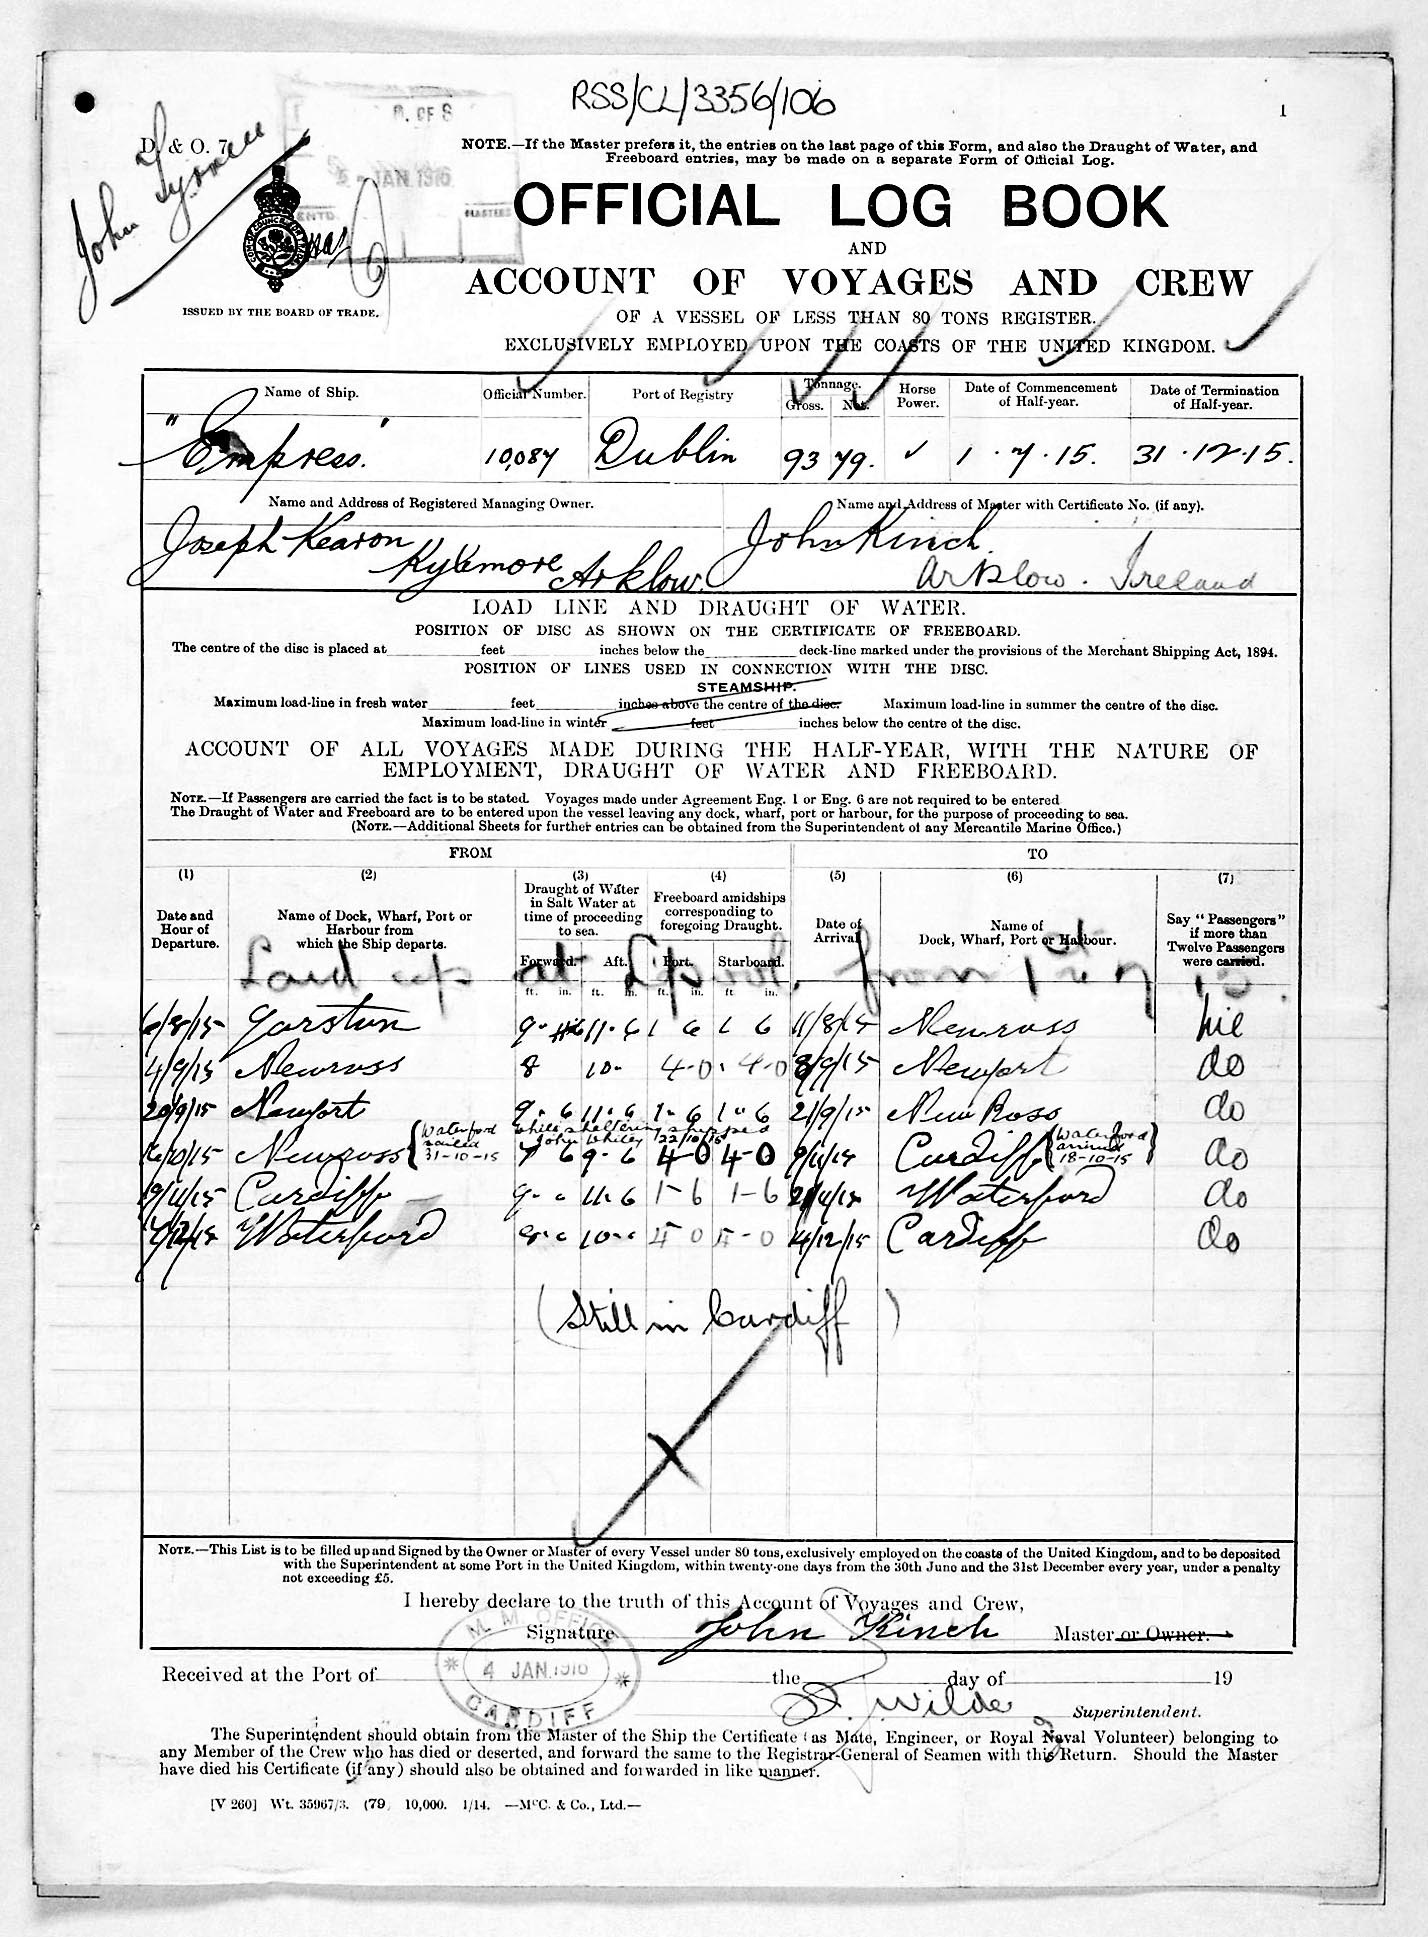 RSS/CL/3356/106
1
D. & O. 7.
John Tyrrell
JAN. 1916
NOTE.—If the Master prefers it, the entries on the last page of this Form, and also the Draught of Water, and
Freeboard entries, may be made on a separate Form of Official Log.
OFFICIAL LOG BOOK
AND
ACCOUNT OF VOYAGES AND CREW
OF A VESSEL OF LESS THAN 80 TONS REGISTER.
EXCLUSIVELY EMPLOYED UPON THE COASTS OF THE UNITED KINGDOM.
ISSUED BY THE BOARD OF TRADE.
Name of Ship. Official Number. Port of Registry Tonnage. Gross. Net. Horse Power. Date of Commencement of Half-year. Date of Termination of Half-year.
"Empress." 10,087 Dublin 93 79. 1.7.15. 31.12.15.
Name and Address of Registered Managing Owner. Name and Address of Master with Certificate No. (if any).
Joseph Kearon John Kinch.
Kylemore Arklow. Arklow. Ireland
LOAD LINE AND DRAUGHT OF WATER.
POSITION OF DISC AS SHOWN ON THE CERTIFICATE OF FREEBOARD.
The centre of the disc is placed at feet inches below the deck-line marked under the provisions of the Merchant Shipping Act, 1894.
POSITION OF LINES USED IN CONNECTION WITH THE DISC.
STEAMSHIP.
Maximum load-line in fresh water feet inches above the centre of the disc. Maximum load-line in summer the centre of the disc.
Maximum load-line in winter feet inches below the centre of the disc.
ACCOUNT OF ALL VOYAGES MADE DURING THE HALF-YEAR, WITH THE NATURE OF
EMPLOYMENT, DRAUGHT OF WATER AND FREEBOARD.
NOTE.—If Passengers are carried the fact is to be stated. Voyages made under Agreement Eng. 1 or Eng. 6 are not required to be entered
The Draught of Water and Freeboard are to be entered upon the vessel leaving any dock, wharf, port or harbour, for the purpose of proceeding to sea.
(NOTE.—Additional Sheets for further entries can be obtained from the Superintendent of any Mercantile Marine Office.)
FROM TO
(1) (2) (3) (4) (5) (6) (7)
Date and Hour of Departure. Name of Dock, Wharf, Port or Harbour from which the Ship departs. Draught of Water in Salt Water at time of proceeding to sea. Freeboard amidships corresponding to foregoing Draught. Date of Arrival. Name of Dock, Wharf, Port or Harbour. Say "Passengers" if more than Twelve Passengers were carried.
Forward. Aft. Port. Starboard.
Laid up at L'pool. from 1st 7 15.
ft. in. ft. in. ft. in. ft in.
6/8/15 Garston 9. 6 11. 6 1 6 1 6 11/8/15 Newross nil
4/9/15 Newross 8 10. 4-0. 4-0 8/9/15 Newport do
20/9/15 Newport 9. 6 11. 6 1. 6 1. 6 21/9/15 New Ross do
Waterford sailed 31-10-15 while sheltering shipped John Whiley 22/10/15 Waterford arrived 18-10-15
Newross 7 6 9-6 4-0 4-0 Cardiff do
Cardiff 11. 6 1-6 1-6 Waterford do
Waterford 5 0 5-0 14/12/15 Cardiff do
(Still in Cardiff)
NOTE.—This List is to be filled up and Signed by the Owner or Master of every Vessel under 80 tons, exclusively employed on the coasts of the United Kingdom, and to be deposited
with the Superintendent at some Port in the United Kingdom, within twenty-one days from the 30th June and the 31st December every year, under a penalty
not exceeding £5.
I hereby declare to the truth of this Account of Voyages and Crew,
Signature John Kinch Master or Owner.
M. M. OFFICE
4 JAN. 1916
CARDIFF
Received at the Port of the day of 19
Wilde Superintendent.
The Superintendent should obtain from the Master of the Ship the Certificate (as Mate, Engineer, or Royal Naval Volunteer) belonging to
any Member of the Crew who has died or deserted, and forward the same to the Registrar-General of Seamen with this Return. Should the Master
have died his Certificate (if any) should also be obtained and forwarded in like manner.
[V 260] Wt. 35967/3. (79 10,000. 1/14. —McC. & Co., Ltd.—